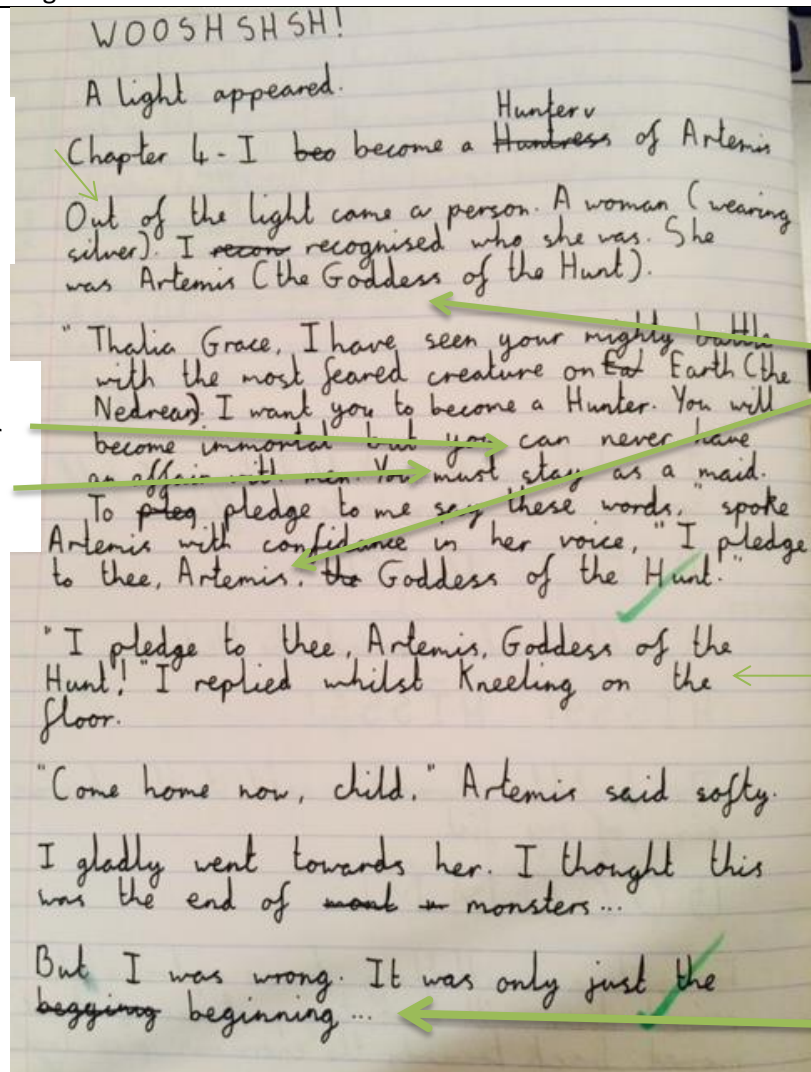 WOOSHSHSH!
A light appeared.
Hunter
Chapter 4 - I beo become a Huntress of Artemis
Out of the light came a person. A woman (wearing
silver). I recon recognised who she was. She
was Artemis (the Goddess of the Hunt).
"Thalia Grace, I have seen your mighty battle
with the most feared creature on Eat Earth (the
Nedrean). I want you to become a Hunter. You will
become immortal but you can never have
an affair with men. You must stay as a maid.
To pleg pledge to me say these words," spoke
Artemis with confidance in her voice, "I pledge
to thee, Artemis, the Goddess of the Hunt."
"I pledge to thee, Artemis, Goddess of the
Hunt!" I replied whilst kneeling on the
floor.
"Come home now, child." Artemis said softy.
I gladly went towards her. I thought this
was the end of monsters...
But I was wrong. It was only just the
begging beginning...